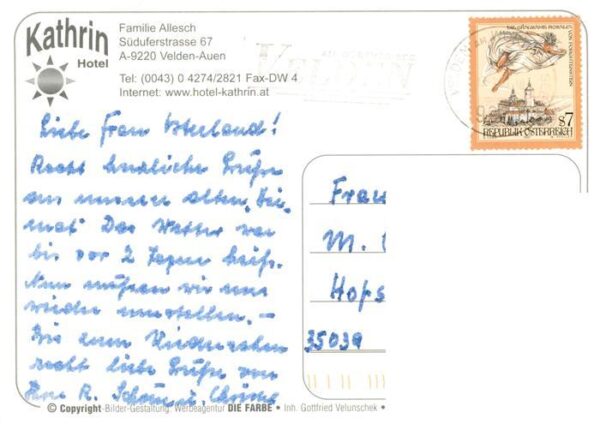 Kathrin
Hotel
Familie Allesch
Süduferstrasse 67
A-9220 Velden-Auen
Tel: (0043) 0 4274/2821 Fax-DW 4
Internet: www.hotel-kathrin.at
VELDEN
s7
REPUBLIK ÖSTERREICH
Liebe Frau Osterland!
Recht herzliche Grüße
aus unserer alten Hei-
mat Das Wetter war
bis vor 2 Tagen heiß.
Nun müssen wir uns
wieder umstellen. –
Bis zum Wiedersehen
recht liebe Grüße von
R.
Frau
M.
Hofs
35039
© Copyright-Bilder-Gestaltung: Werbeagentur DIE FARBE • Inh. Gottfried Velunschek •